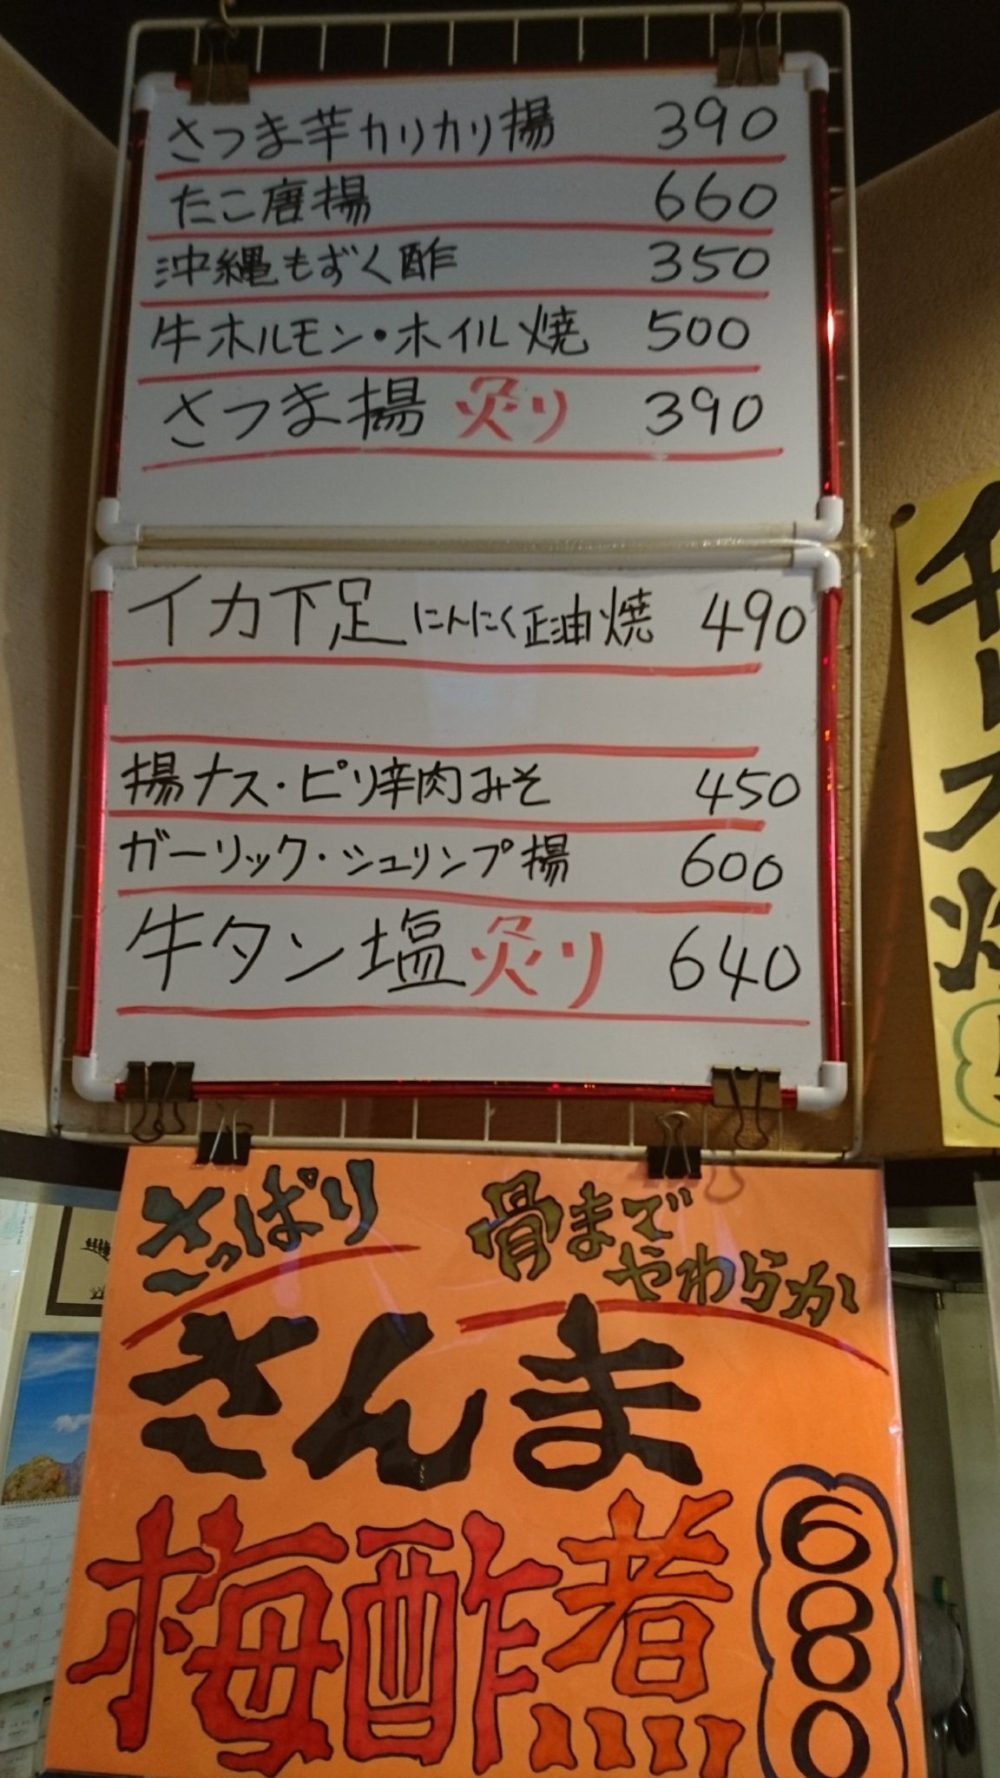 さつま芋カリカリ揚 390
たこ唐揚 660
沖縄もずく酢 350
牛ホルモン・ホイル焼 500
さつま揚 炙り 390
イカ下足 にんにく正油焼 490
揚ナス・ピリ辛肉みそ 450
ガーリック・シュリンプ揚 600
牛タン塩炙り 640
さっぱり
骨まで
やわらか
さんま
梅酢煮
680